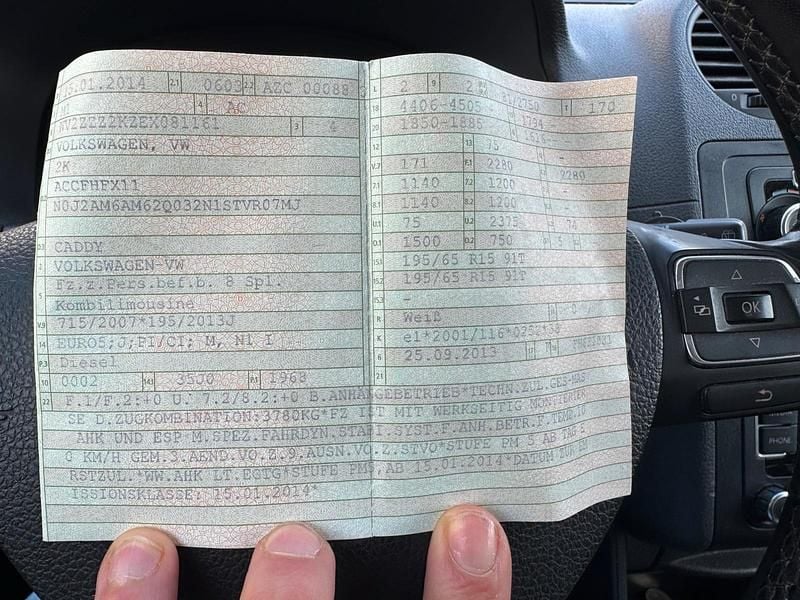 .01.2014 2.1 0603 2.2 AZC 00088
4 AC
WV2ZZZ2KZEX081161 3 4
VOLKSWAGEN, VW
2K
ACCFHFX11
N0J2AM6AM62Q032N1STVR07MJ
CADDY
2 VOLKSWAGEN-VW
5 Fz.z.Pers.bef.b. 8 Spl.
Kombilimousine
V.9 715/2007*195/2013J
14 EURO5;J;PI/CI; M, N1 I
P.3 Diesel
10 0002 14.1 35J0 P.1 1968
L 2 9 2 /2750 T 170
18 4406-4505 1794
20 1850-1885
12 - 13 75 -
V.7 171 F.1 2280 2280
7.1 1140 7.2 1200 -
8.1 1140 8.2 1200 -
U.1 75 U.2 2375 74
O.1 1500 O.2 750 S 5
15.1 195/65 R15 91T
15.2 195/65 R15 91T
15.3 -
R Weiß
K e1*2001/116*
6 25.09.2013 17
21
22 F.1/F.2:+0 U. 7.2/8.2:+0 B.ANHÄNGEBETRIEB*TECHN.ZUL.GES-MAS
SE D.ZUGKOMBINATION:3780KG*FZ IST MIT WERKSEITIG MONTIERTER
AHK UND ESP M.SPEZ.FAHRDYN.STABI.SYST.F.ANH.BETR.F.TEMP.10
0 KM/H GEM.3.AEND.VO.Z.9.AUSN.VO.Z.STVO*STUFE PM 5 AB TAG E
RSTZUL.*WW.AHK LT.EGTG*STUFE PM5 AB 15.01.2014*DATUM ZUR EM
ISSIONSKLASSE: 15.01.2014*
OK
PHONE